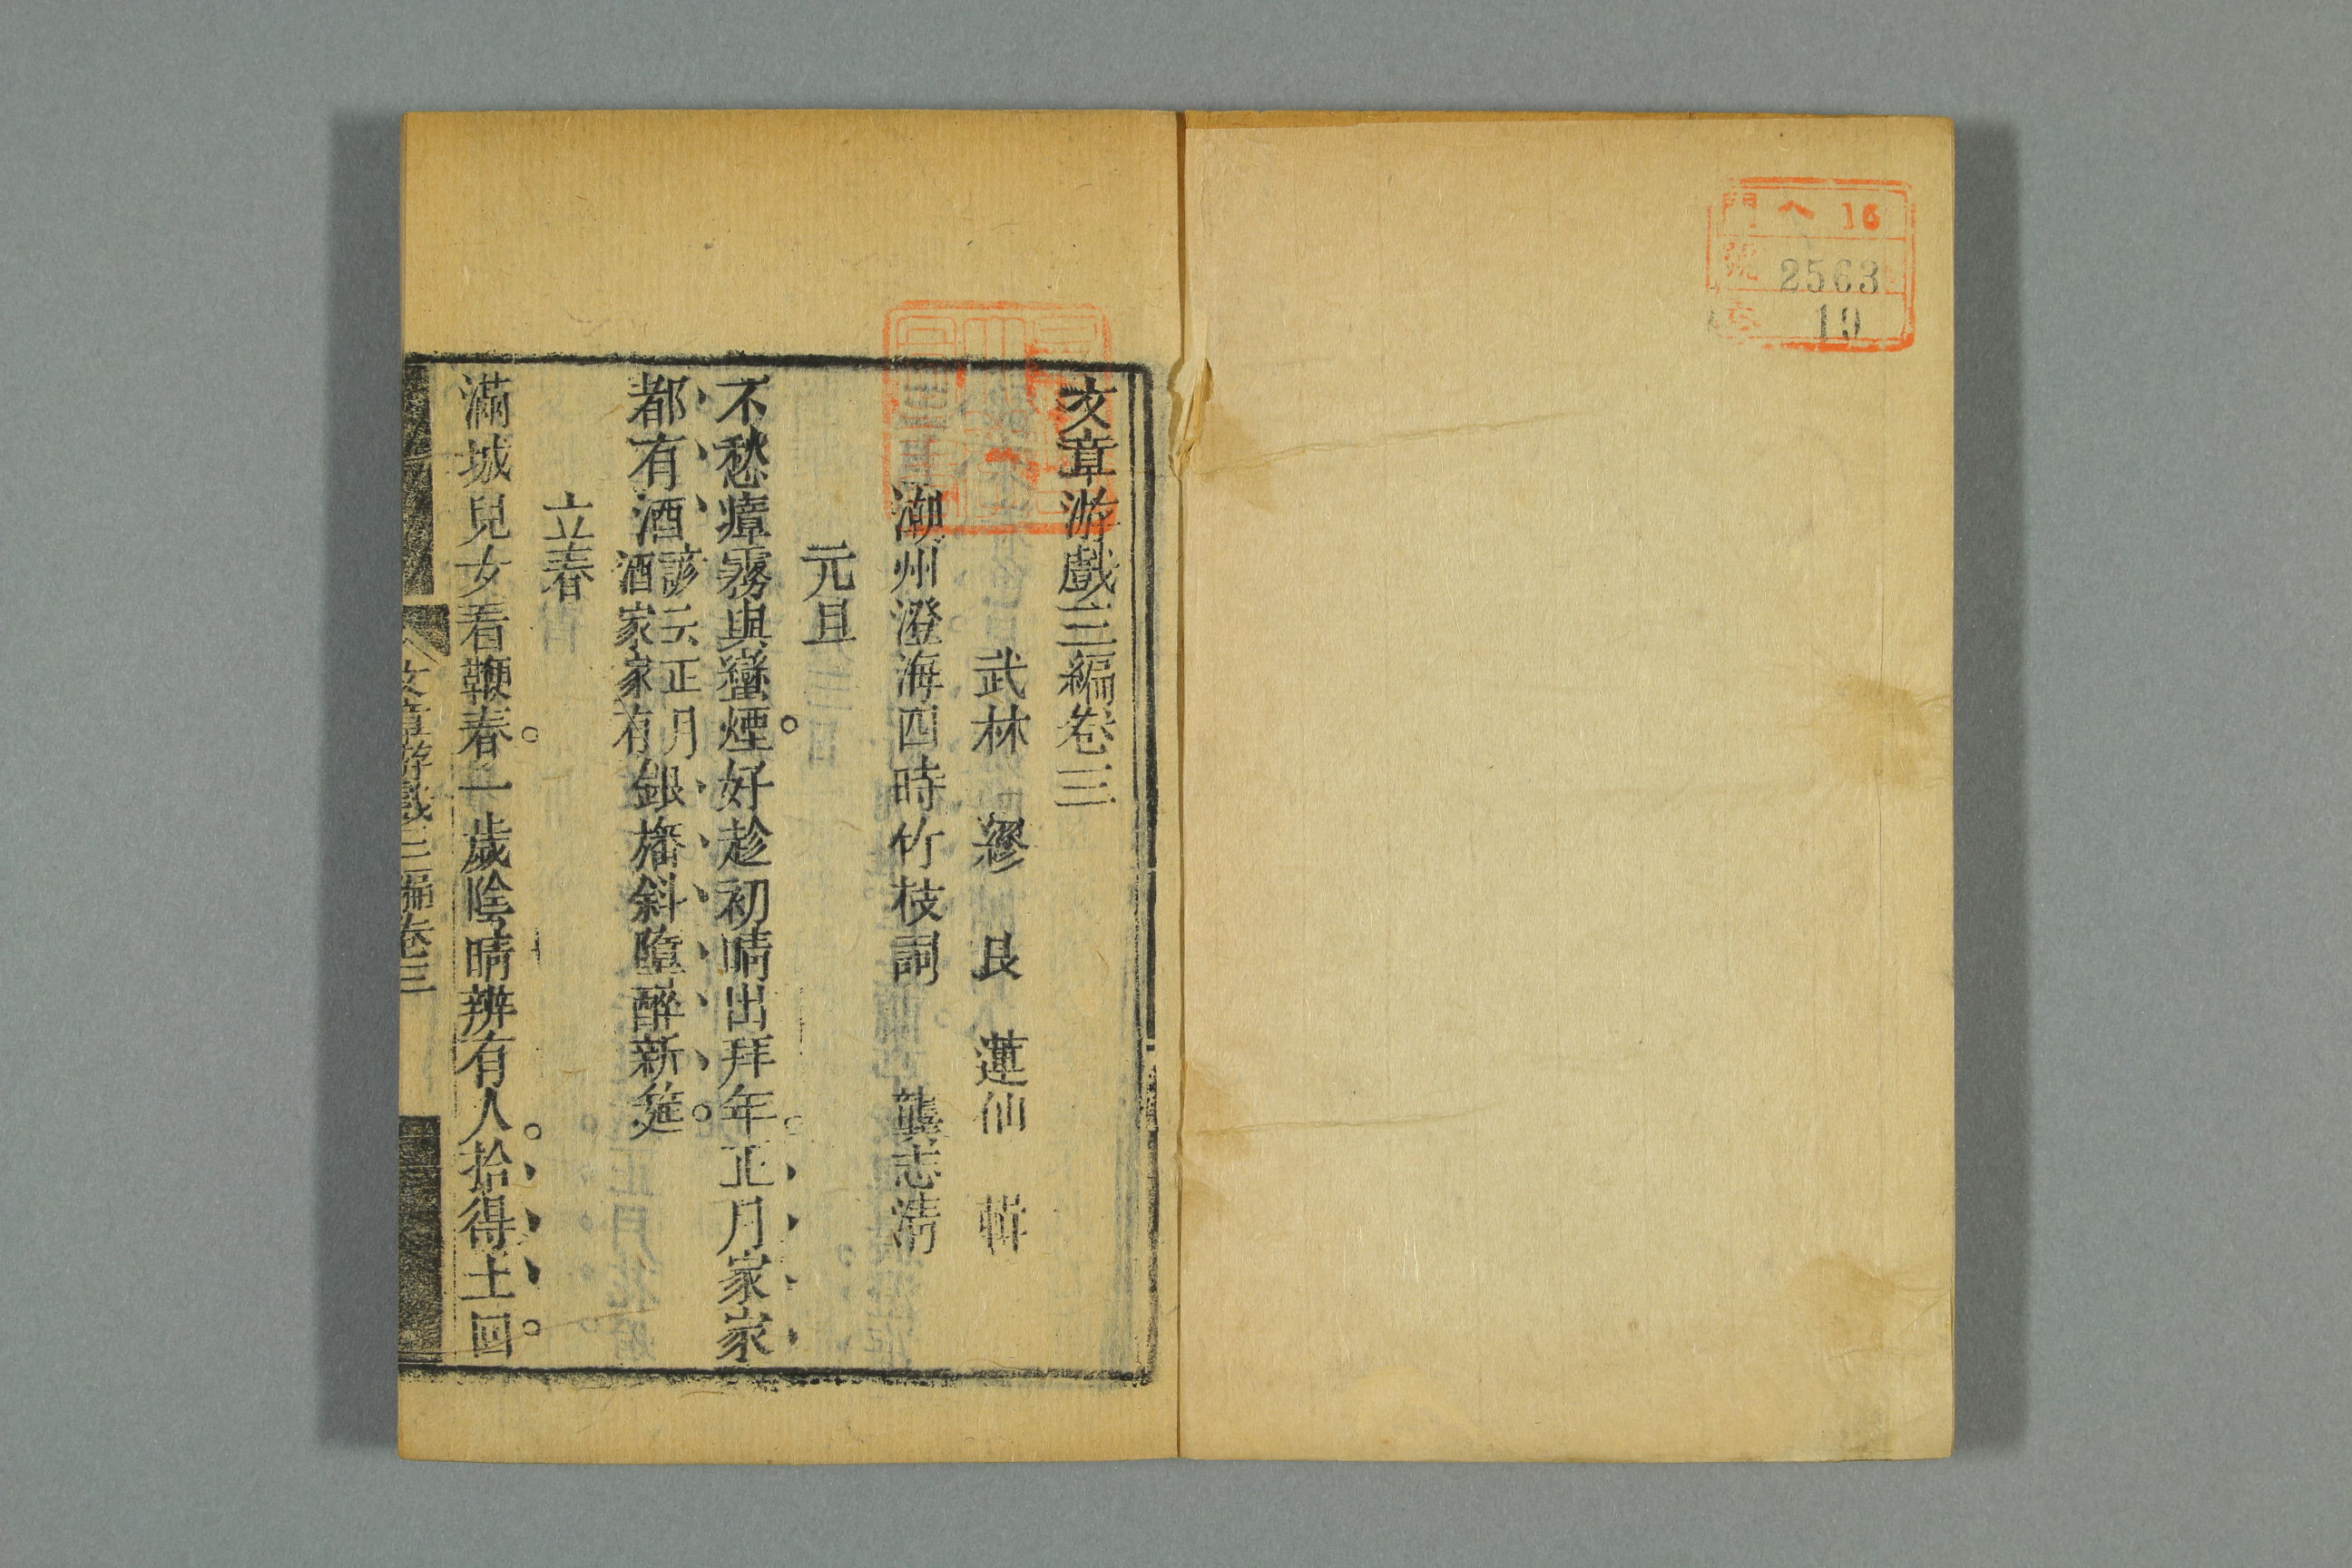 門 ヘ 16
號 2563
卷 10
文章游戲三編卷三
武林 繆 艮 蓮仙 輯
潮州澄海四時竹枝詞 龔志清
元旦
不愁瘴霧與蠻煙好趁初晴出拜年正月家家
都有酒諺云正月酒家家有銀旛斜墮醉新筵
立春
滿城兒女看鞭春一歲陰晴辨有人拾得土回
文章游戲三編卷三